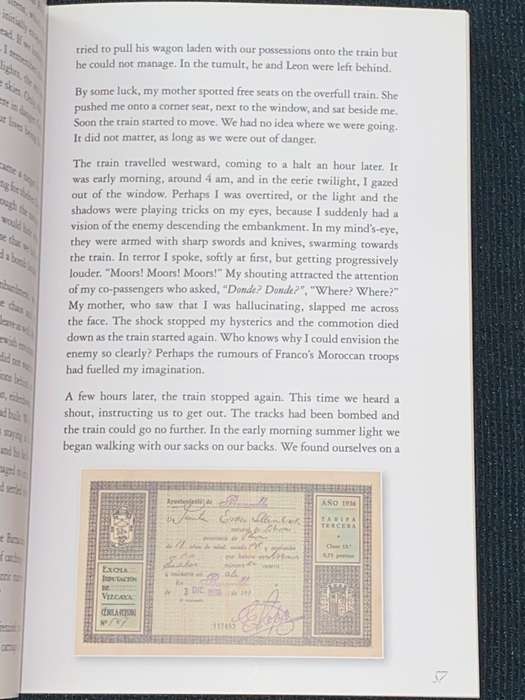 tried to pull his wagon laden with our possessions onto the train but
he could not manage. In the tumult, he and Leon were left behind.
By some luck, my mother spotted free seats on the overfull train. She
pushed me onto a corner seat, next to the window, and sat beside me.
Soon the train started to move. We had no idea where we were going.
It did not matter, as long as we were out of danger.
The train travelled westward, coming to a halt an hour later. It
was early morning, around 4 am, and in the eerie twilight, I gazed
out of the window. Perhaps I was overtired, or the light and the
shadows were playing tricks on my eyes, because I suddenly had a
vision of the enemy descending the embankment. In my mind's-eye,
they were armed with sharp swords and knives, swarming towards
the train. In terror I spoke, softly at first, but getting progressively
louder. "Moors! Moors! Moors!" My shouting attracted the attention
of my co-passengers who asked, "Donde? Donde?", "Where? Where?"
My mother, who saw that I was hallucinating, slapped me across
the face. The shock stopped my hysterics and the commotion died
down as the train started again. Who knows why I could envision the
enemy so clearly? Perhaps the rumours of Franco's Moroccan troops
had fuelled my imagination.
A few hours later, the train stopped again. This time we heard a
shout, instructing us to get out. The tracks had been bombed and
the train could go no further. In the early morning summer light we
began walking with our sacks on our backs. We found ourselves on a
Ayuntamiento de
AÑO 1936
TARIFA
TERCERA
EXCMA
DIPUTACIÓN
DE
VIZCAYA
CÉDULA PERSONAL
Nº
57